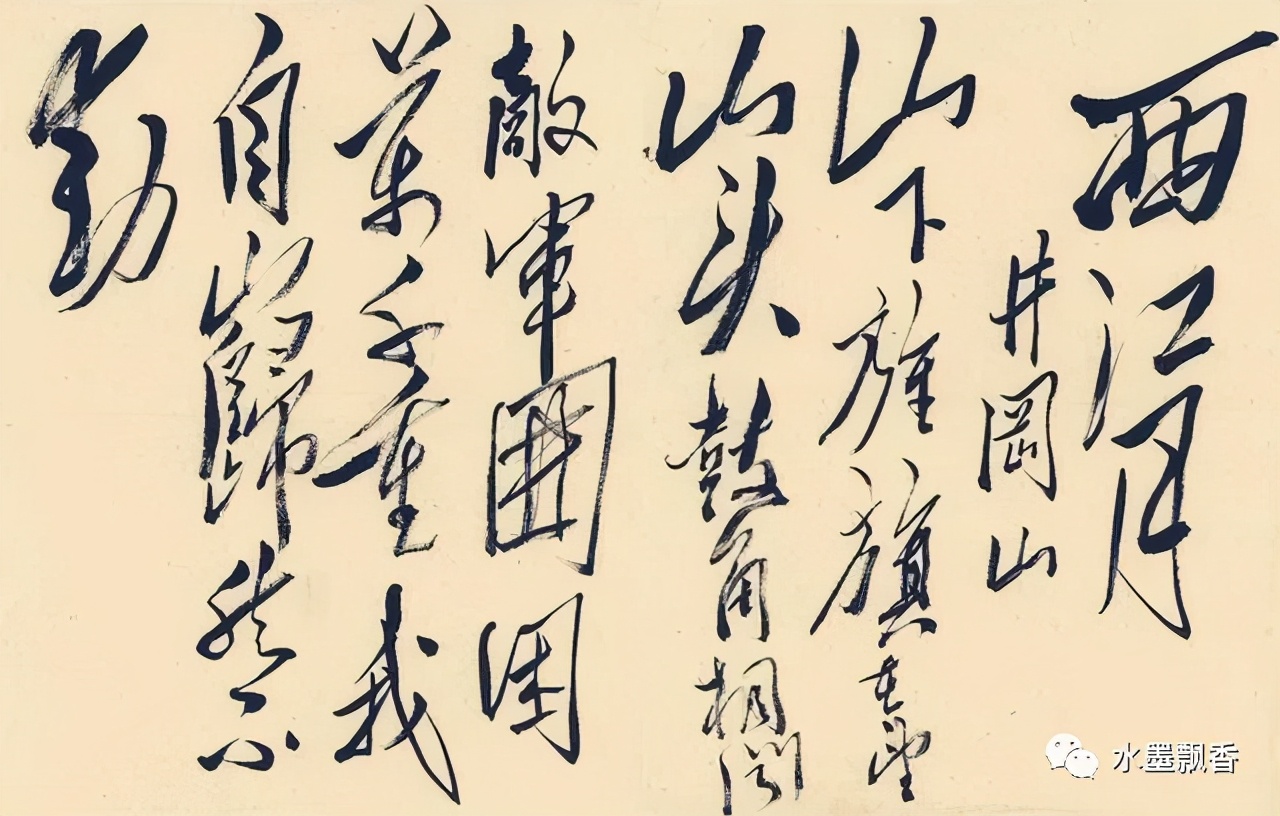 西江月
井岡山
山下旌旗在望
山头鼓角相闻
敵軍圍困
萬千重我
自巋然不
動
水墨飘香